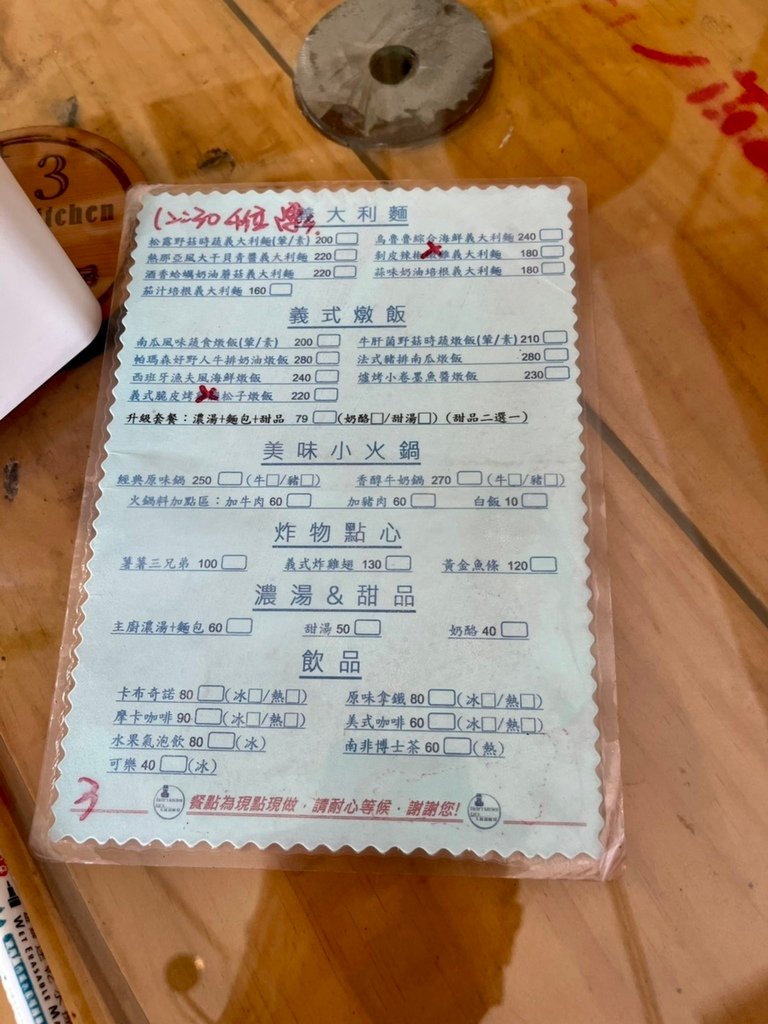 3
Kitchen
12:30 4位
義大利麵
松露野菇時蔬義大利麵(葷/素) 200 烏魯魯綜合海鮮義大利麵 240
熱那亞風大干貝青醬義大利麵 220 剝皮辣椒 雞義大利麵 180
酒香蛤蠣奶油蘑菇義大利麵 220 蒜味奶油培根義大利麵 180
茄汁培根義大利麵 160
義式燉飯
南瓜風味蔬食燉飯(葷/素) 200 牛肝菌野菇時蔬燉飯(葷/素) 210
帕瑪森好野人牛排奶油燉飯 280 法式豬排南瓜燉飯 280
西班牙漁夫風海鮮燉飯 240 爐烤小卷墨魚醬燉飯 230
義式脆皮烤 松子燉飯 220
升級套餐：濃湯+麵包+甜品 79 (奶酪□/甜湯□) (甜品二選一)
美味小火鍋
經典原味鍋 250 (牛□/豬□) 香醇牛奶鍋 270 (牛□/豬□)
火鍋料加點區：加牛肉 60 加豬肉 60 白飯 10
炸物點心
薯薯三兄弟 100 義式炸雞翅 130 黃金魚條 120
濃湯&甜品
主廚濃湯+麵包 60 甜湯 50 奶酪 40
飲品
卡布奇諾 80 (冰□/熱□) 原味拿鐵 80 (冰□/熱□)
摩卡咖啡 90 (冰□/熱□) 美式咖啡 60 (冰□/熱□)
水果氣泡飲 80 (冰) 南非博士茶 60 (熱)
可樂 40 (冰)
3
餐點為現點現做，請耐心等候，謝謝您!
WET ERASABLE